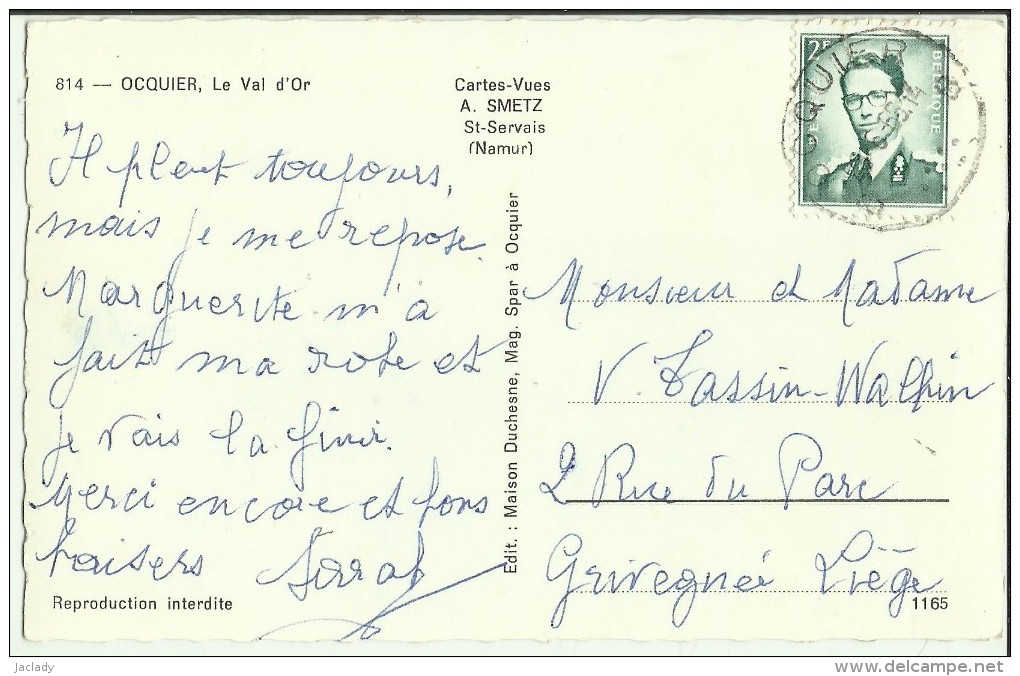 814 — OCQUIER, Le Val d'Or
Cartes-Vues
A. SMETZ
St-Servais
(Namur)
Il pleut toujours,
mais je me repose.
Marguerite m'a
fait ma robe et
je vais la finir.
Merci encore et bons
baisers
Reproduction interdite
Edit. : Maison Duchesne, Mag. Spar à Ocquier
2F
BELGIQUE
OCQUIER
Monsieur et Madame
V. Tassin-Walpin
2 Rue du Parc
Grivegnée Liège
1165
jaclady
www.delcampe.net